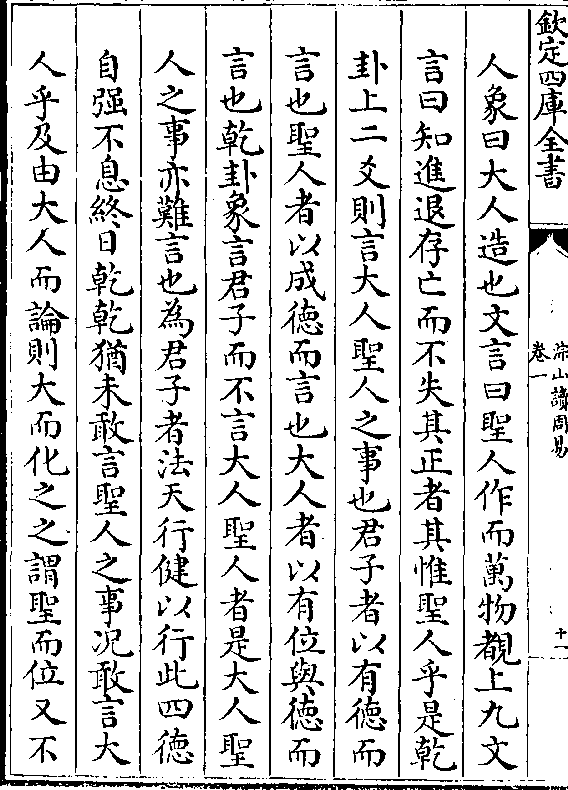 欽定四庫全書
卷一
淙山讀周易
十一
人象曰大人造也文言曰聖人作而萬物覩上九文
言曰知進退存亡而不失其正者其惟聖人乎是乾
卦上二爻則言大人聖人之事也君子者以有徳而
言也聖人者以成徳而言也大人者以有位與徳而
言也乾卦象言君子而不言大人聖人者是大人聖
人之事亦難言也為君子者法天行健以行此四徳
自强不息終日乾乾猶未敢言聖人之事况敢言大
人乎及由大人而論則大而化之之謂聖而位又不